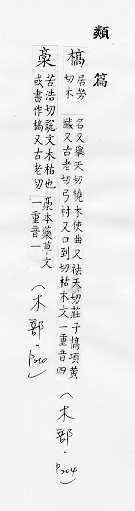 類篇
槁
居勞
切木
名又舉夭切燒木使曲又祛夭切莊子槁項黄
馘又古老切弓袝又口到切枯木文一重音四
(木部・P204)
槀
苦浩切說文木枯也槀本藥艸文
或書作槁又古老切一重音一
(木部・P210)